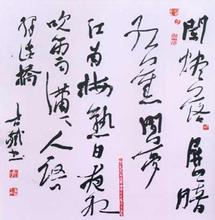 蘭燼落屏上暗
红蕉閒夢
江南梅熟日夜船
吹笛雨瀟瀟人語
驛邊橋